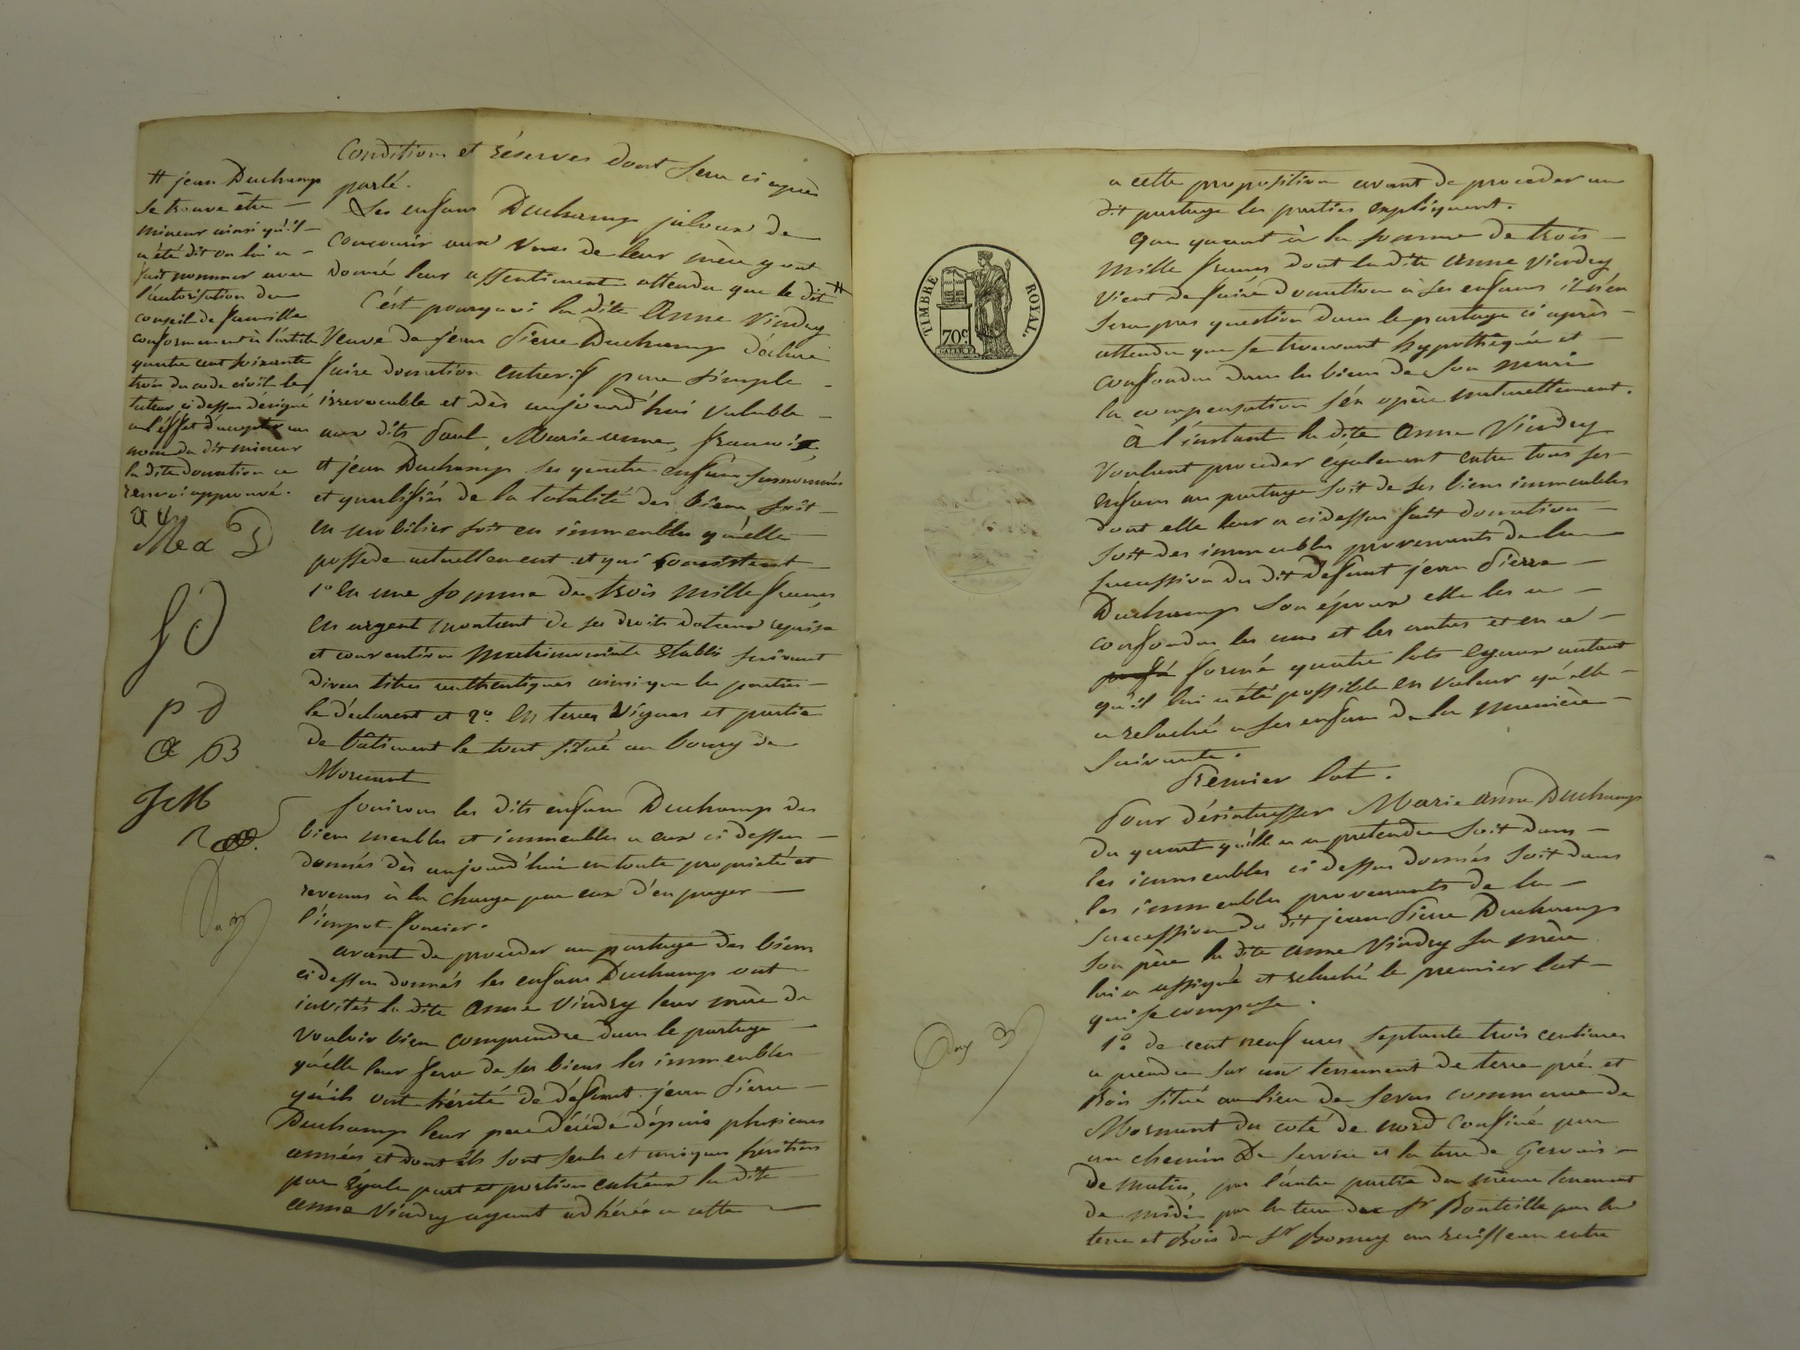 conditions et réserves dont sera ci après
parlé.
Les enfans Duchamp jaloux de
concourir aux vues de leur mère y ont
donné leur assentiment attendu que le dit #
C'est pourquoi la dite Anne Vindry
Veuve de jean Pierre Duchamp déclare
faire donation entrevif pure simple
irrevocable et dès aujourd'hui valable
aux dits Paul, Marie anne, francois,
et jean Duchamp ses quatre enfans surnommés
et qualifiés de la totalité des biens soit
en mobilier soit en immeubles qu'elle
possede actuellement et qui consistent
1° en une somme de trois mille francs
en argent montant de ses droits dotaux reprises
et convention matrimoniale etablis suivant
divers titres authentiques ainsi que les parties
le déclarent et 2°. en terres Vignes et partie
de bâtiment le tout situé au bourg de
Mornant
Jouirons les dits enfans Duchamp des
biens meubles et immeubles a eux ci dessus
donnés dès aujourd'hui en toute propriété et
revenus à la charge par eux d'en payer
l'impot foncier.
avant de proceder au partage des biens
ci dessus donnés les enfans Duchamp ont
invités la dite Anne Vindry leur mère de
vouloir bien comprendre dans le partage
qu'elle leur fera de ses biens les immeubles
qu'ils ont hérité de défunt jean Pierre
Duchamp leur père décédé dépuis plusieurs
années et dont ils sont seuls et uniques héritiers
par égale part et portion entr'eux la dite
Anne Vindry ayant adhérée a cette
# jean Duchamp
se trouve etre
mineur ainsi qu'il
a été dit on lui a
fait nommer avec
l'autorisation du
conseil de famille
conformement à l'article
quatre cent soixante
trois du code civil le
tuteur ci dessus désigné
a l'éffet d'accepter au
nom du dit mineur
la dite donation ce
renvoi approuvé.
a v
Me a D
f d
p d
a B
JcM
TIMBRE ROYAL.
70c
a cette proposition avant de proceder au
dit partage les parties expliquent.
que quant à la somme de trois
mille francs dont la dite Anne Vindry
vient de faire donation à ses enfans il n'en
sera pas question dans le partage ci après
attendu que se trouvant hypothéquée et
confondue dans les biens de son mari
la compensation s'en opère naturellement.
à l'instant la dite Anne Vindry
voulant proceder également entre tous ses
enfans au partage soit de ses biens immeubles
dont elle leur a ci dessus fait donation
soit des immeubles provenants de la
succession du dit défunt jean Pierre
Duchamp son époux elle les a
confondus les uns et les autres et en a
formé quatre lots egaux autant
qu'il lui a été possible en valeur qu'elle
a relaché a ses enfans de la manière
suivante.
Premier lot.
Pour désintresser Marie anne Duchamp
du quart qu'elle a a pretendre soit dans
les immeubles ci dessus donnés soit dans
les immeubles provenants de la
succession du dit jean Pierre Duchamp
son père la dite Anne Vindry sa mère
lui a assigné et relaché le premier lot
qui se compose.
1° de cent neuf ares septante trois centiares
a prendre sur un tenement de terre pré et
Bois situé au lieu de commune de
Mornant du coté de nord confiné par
un chemin De service et la terre de Gervais
de matin, par l'autre partie du même tenement
de midi par la terre de Sr Bouteille par la
terre et Bois du Sr un ruisseau entre